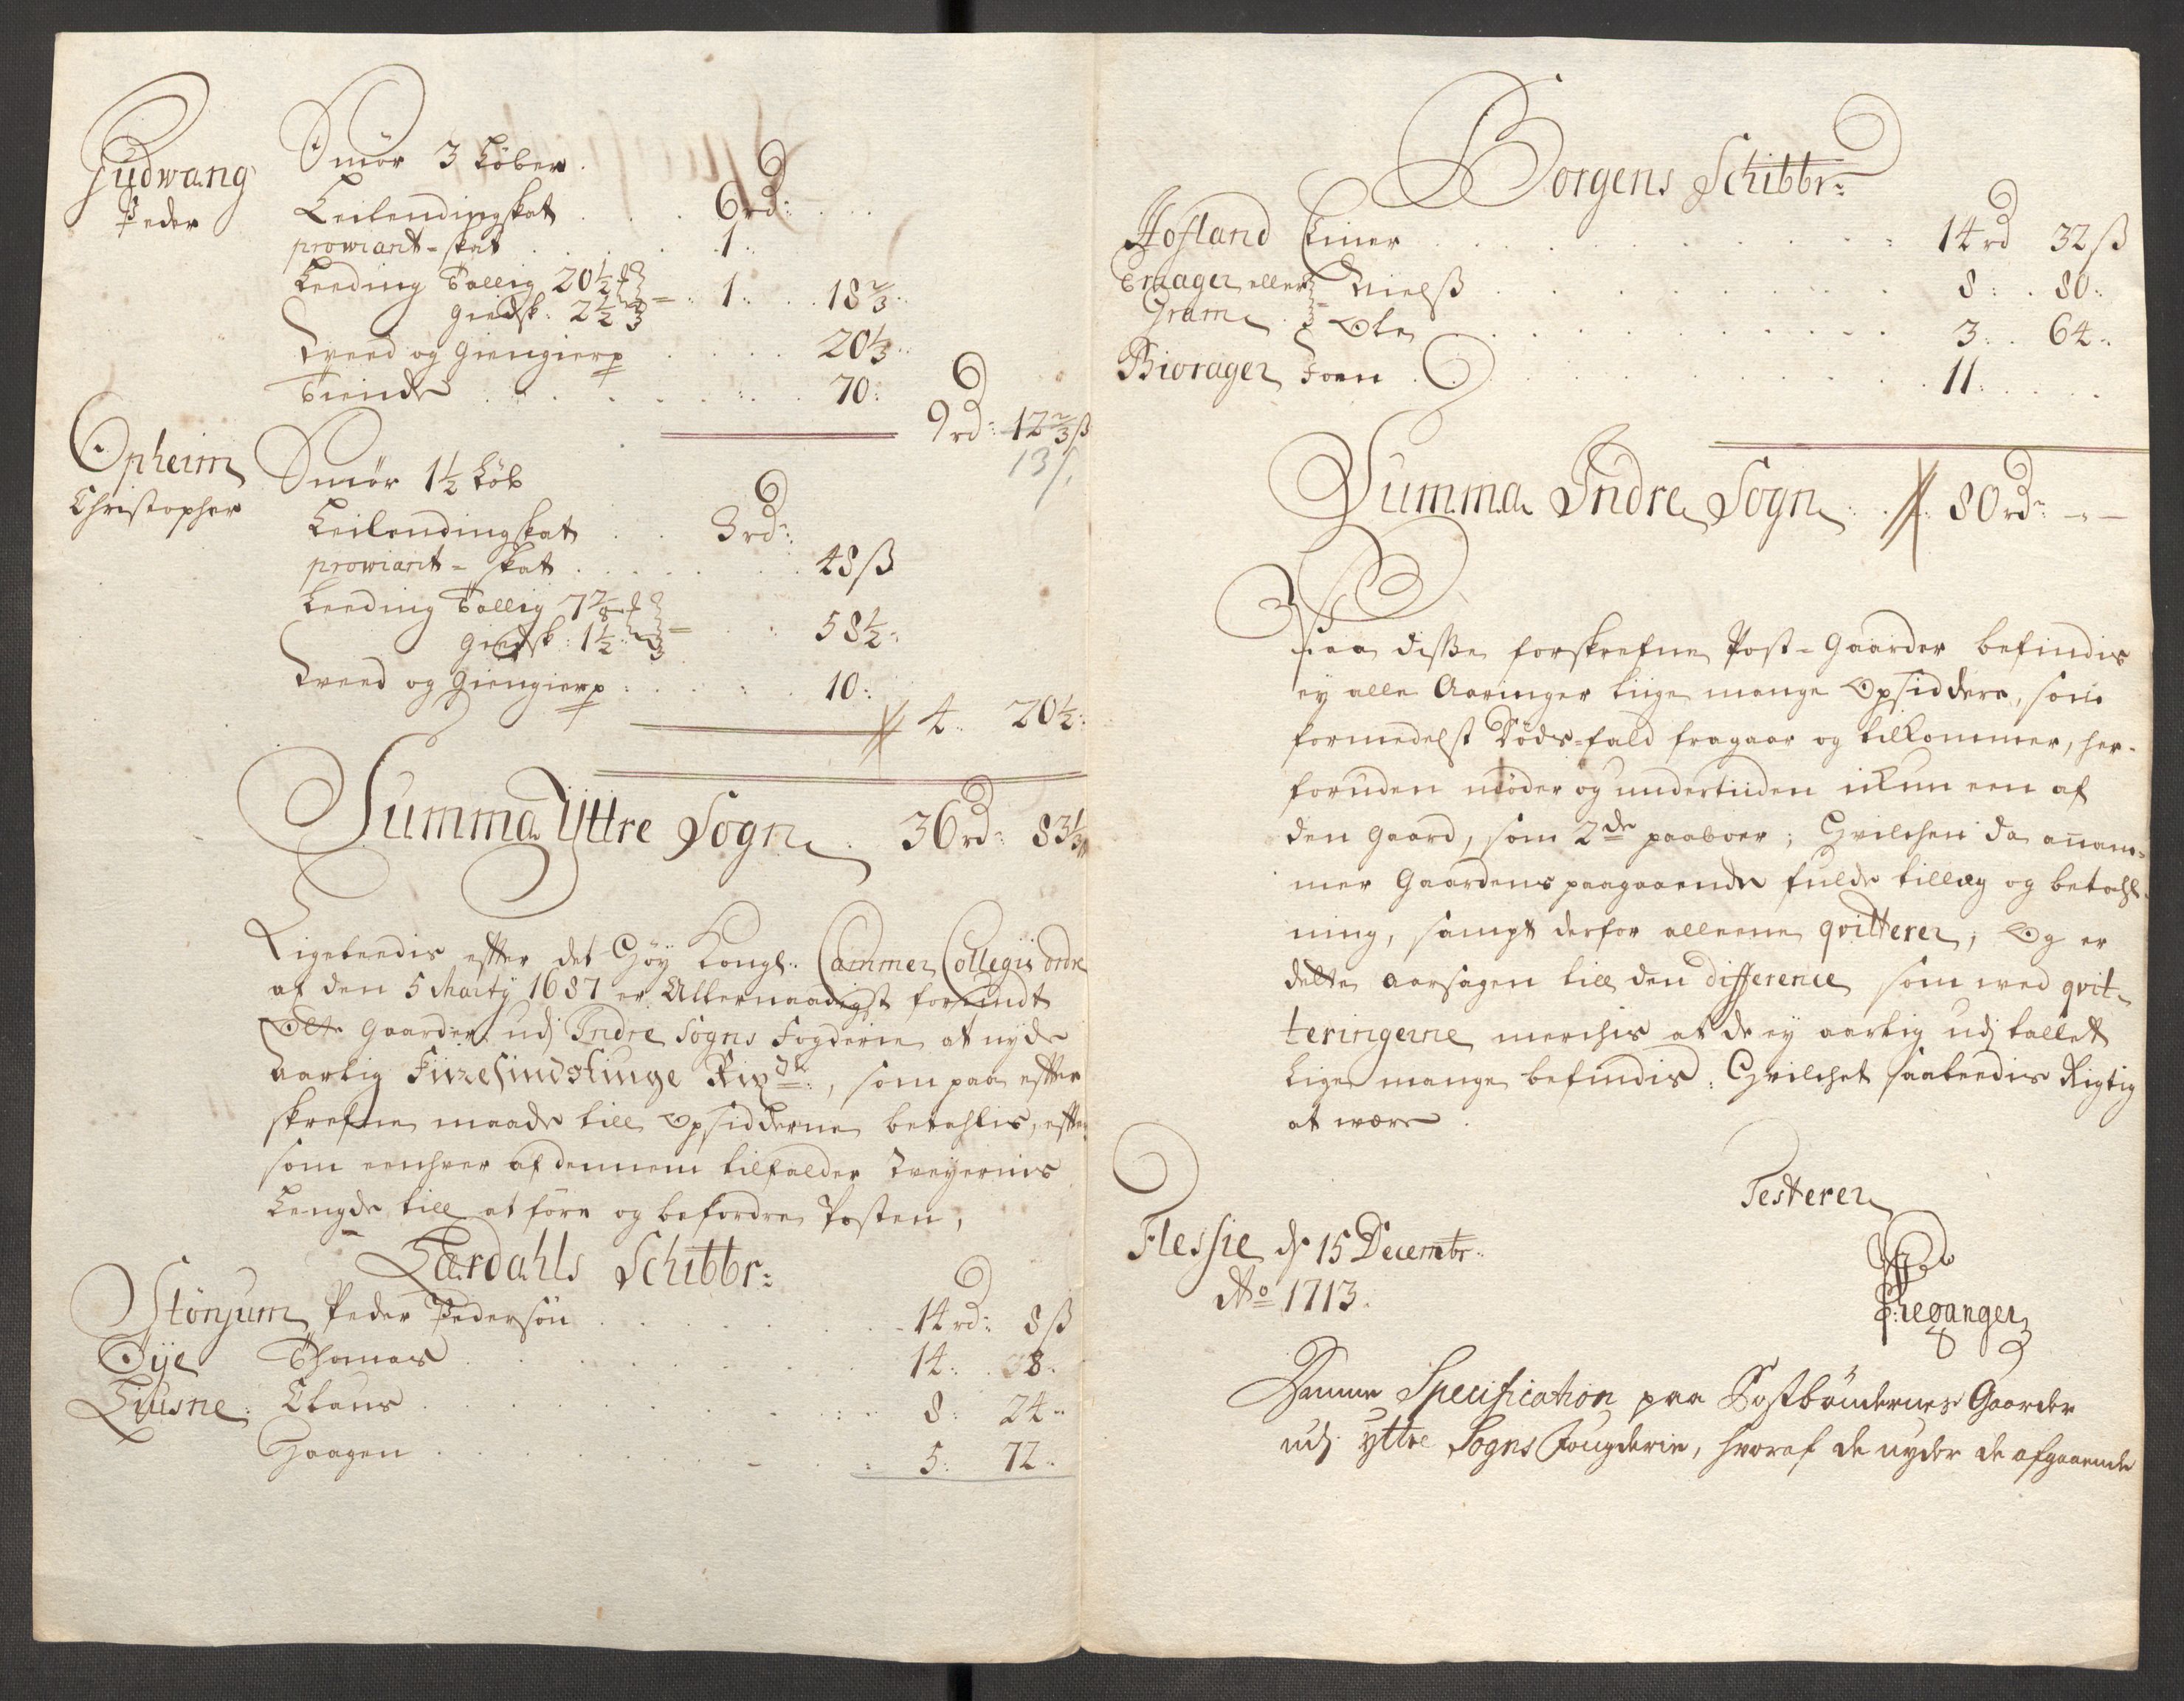 Gudwang Smör 3 Löber.
Peder Leilendingskat . . . 6rd: . . .
prowiant-skat . . . 1 :
Leeding Tollig 20½
giedsk: 2½ = : 1: . . 18⅔:
Tveed og Giengierp . . . 20⅓:
Tiende . . . 70:
9rd: 12⅔ß
13ß
Opheim Smör 1½ Löb
Christopher Leilendingskat . . 3rd:
prowiant-skat . . . 48ß
Leeding Tollig
giedsk: 1½ = . . 58½:
Tveed og Giengierp : . . . 10:
4: 20½:
Summa Yttre Sogn . 36rd: 83⅓
Ligeleedis effter det Höy Kongl: Cammer Collegii ordre
af den 5 Marty 1687 er Allernaadigst forundt
Otte Gaarder udj Indre Sogns Fogderie at nyde
Aarlig Fiiresindstiuge Rixdr:, som paa effter
skrefne maade till Opsidderne betahlis, effter
som eenhver af dennem tilfalder Tveyernis
Lengde till at före og befordre Posten,
Lærdahls Schibbr:
Stönjum Peder Pedersön . . . 14rd: 8ß
Öye Thomas . . . 14: . 8:
Liusne: Claus . . . 8: 24:
Haagen . . . 5: 72:
Borgens Schibbr:
Hofland Einer . . . 14rd 32ß
Ernager eller Nielß . . . 8: . 80:
Gram Ole . . . 3: . 64:
Biorager Joen . . . 11: . . .
Summa Indre Sogn : . 80rd: - -
Paa disse forskrefne Post-Gaarder befindis
ey alle Aaringer liige mange Opsiddere, som
formedelst Döds-fald fragaar og tilkommer, her-
foruden möder og undertiiden ikkun een af
den Gaard, som 2de paaboer; Hvilchen da anam-
mer Gaardens paagaaende fulde tillæg og betahl-
ning, sampt derfor alleene qvitterer; Og er
dette aarsagen till den difference som wed qvit-
teringerne merchis at de ey aarlig udj tallet
lige mange befindis: Hvilchet saaleedis Rigtig
at være.
Testerer
Flessie d. 15 Decembr:
Ao 1713.
Denne Specification paa Postböndernes Gaarder
udj yttre Sogns Fougderie, hvoraf de nyder de afgaaende